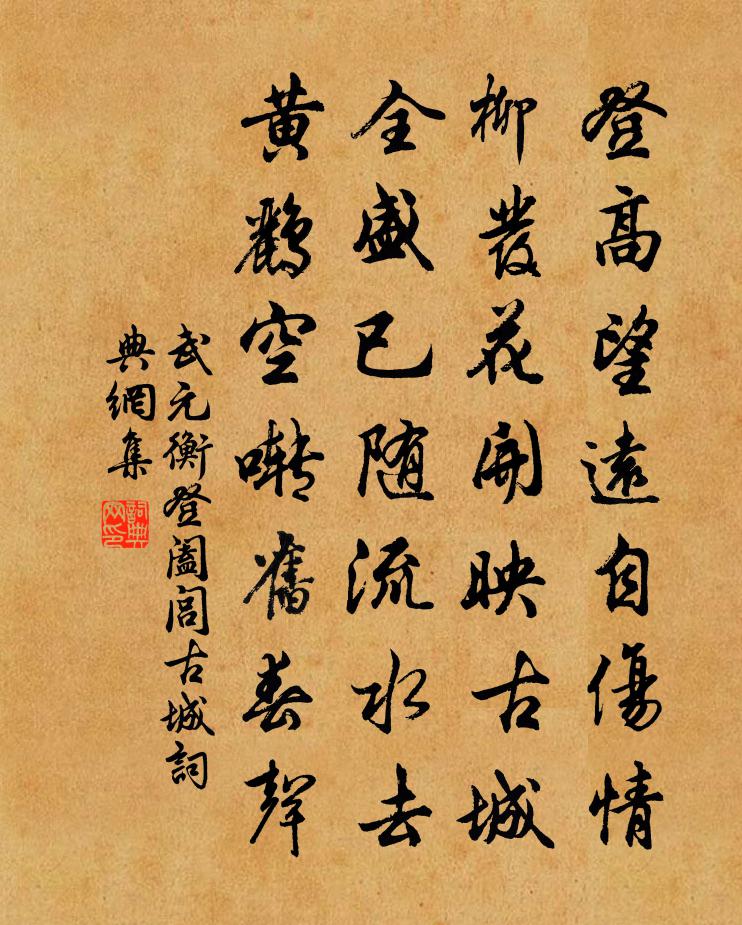 登高望遠自傷情
柳發花開映古城
全盛已随流水去
黃鸝空囀舊春聲
武元衡登闔閭古城詞
典網集
詞典
网印